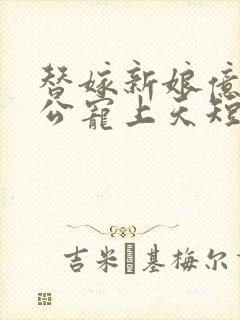 替嫁新娘亿
公宠上天短
吉米·基梅尔